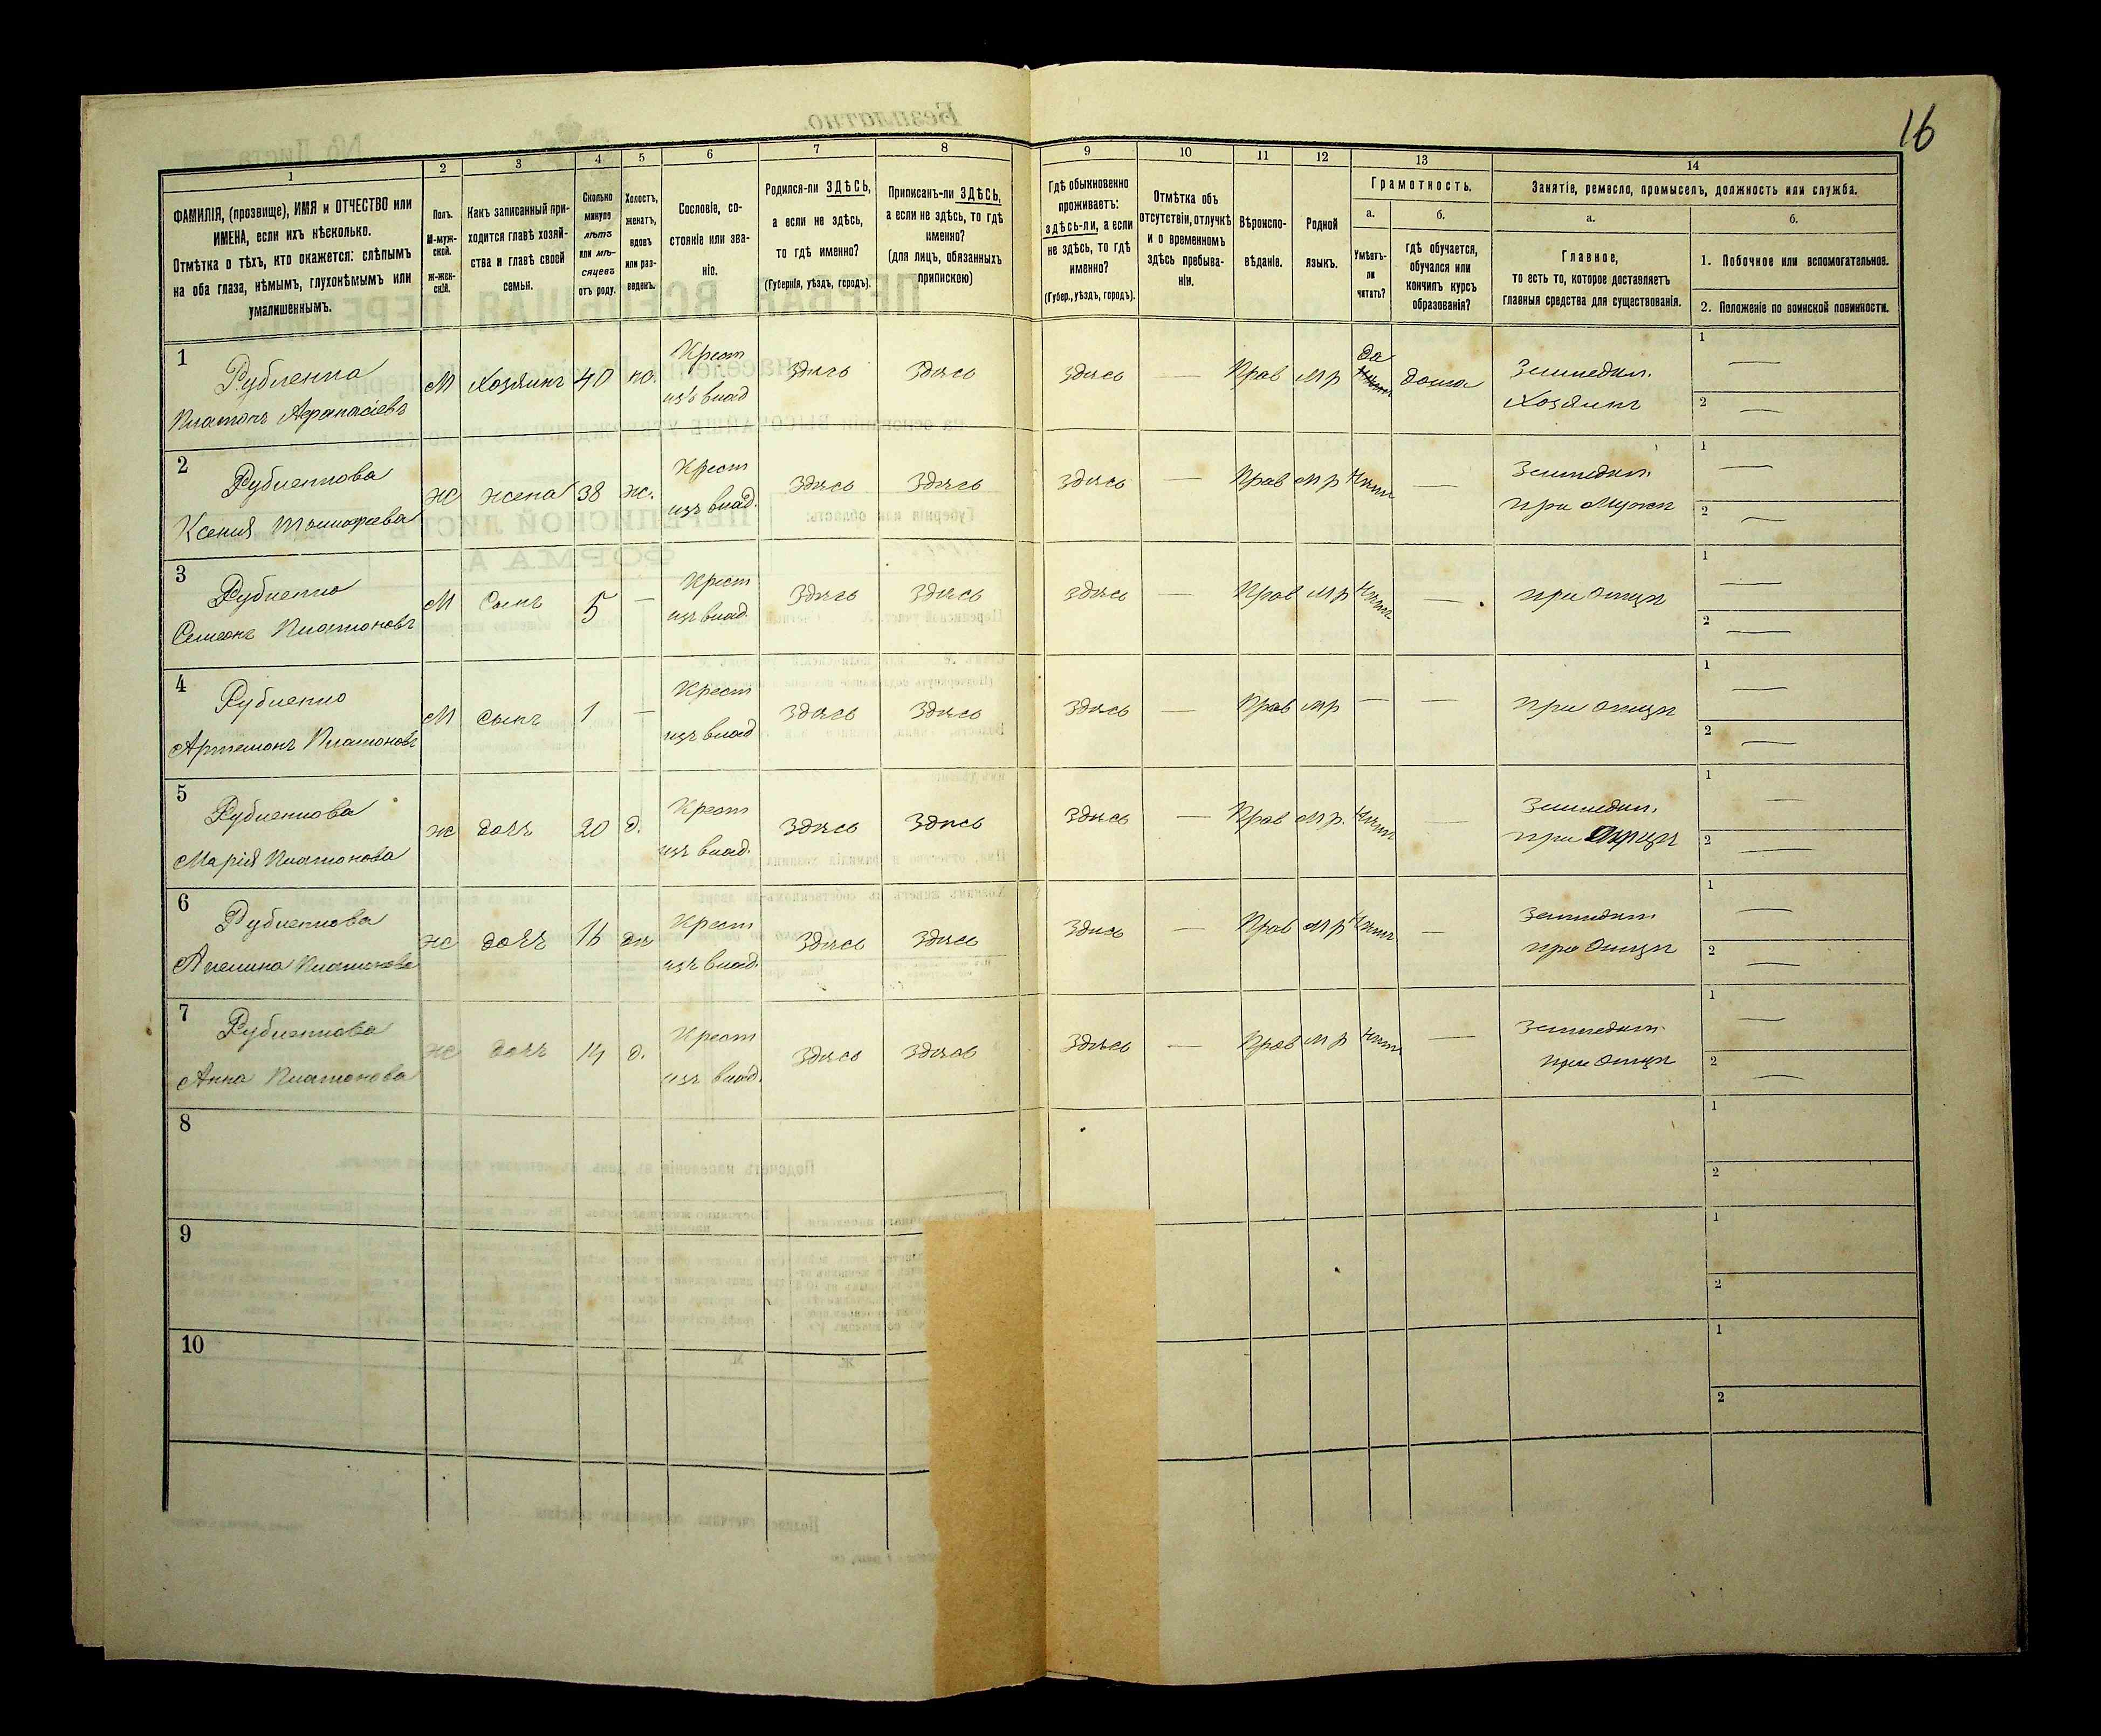 16
1 2 3 4 5 6 7 8 9 10 11 12 13 14
ФАМИЛІЯ, (прозвище), ИМЯ и ОТЧЕСТВО или ИМЕНА, если ихъ нѣсколько.
Отмѣтка о тѣхъ, кто окажется: слѣпымъ на оба глаза, нѣмымъ, глухонѣмымъ или умалишеннымъ.
Полъ. М-мужской. Ж-женскій.
Какъ записанный приходится главѣ хозяйства и главѣ своей семьи.
Сколько минуло лѣтъ или мѣсяцевъ отъ роду.
Холостъ, женатъ, вдовъ или разведенъ.
Сословіе, состояніе или званіе.
Родился-ли ЗДѢСЬ, а если не здѣсь, то гдѣ именно? (Губернія, уѣздъ, городъ).
Приписанъ-ли ЗДѢСЬ, а если не здѣсь, то гдѣ именно? (для лицъ, обязанныхъ припискою)
Гдѣ обыкновенно проживаетъ: здѣсь-ли, а если не здѣсь, то гдѣ именно? (Губер., уѣздъ, городъ).
Отмѣтка объ отсутствіи, отлучкѣ и о временномъ здѣсь пребываніи.
Вѣроисповѣданіе.
Родной языкъ.
Грамотность.
а. Умѣетъ-ли читать?
б. гдѣ обучается, обучался или кончилъ курсъ образованія?
Занятіе, ремесло, промыселъ, должность или служба.
а. Главное, то есть то, которое доставляетъ главныя средства для существованія.
б. 1. Побочное или вспомогательное.
2. Положеніе по воинской повинности.
1 М Хозяинъ 40 Крест Здѣсь Здѣсь Здѣсь — Прав М р Да дома Земледѣл. 1 —
Платонъ Афанасіевъ изъ влад Хозяинъ 2 —
2 ж жена 38 ж. Крест Здѣсь Здѣсь Здѣсь — Прав М р Нѣтъ — Земледѣл. 1 —
Ксенія изъ влад. при Мужѣ 2 —
3 М Сынъ 5 — Крест Здѣсь Здѣсь Здѣсь — Прав М р Нѣтъ — при Отцѣ 1 —
Семеонъ Платоновъ изъ влад 2 —
4 М Сынъ 1 — Крест Здѣсь Здѣсь Здѣсь — Прав М р — — при Отцѣ 1 —
Артемонъ Платоновъ изъ влад 2 —
5 ж дочь 20 д. Крест Здѣсь Здѣсь Здѣсь — Прав М р. Нѣтъ — Земледѣл. 1 —
Марія Платонова изъ влад. при Отцѣ 2 —
6 ж дочь 16 Крест Здѣсь Здѣсь Здѣсь — Прав М р Нѣтъ — Земледѣл. 1 —
Платонова изъ влад. при Отцѣ 2 —
7 ж дочь 14 д. Крест Здѣсь Здѣсь Здѣсь — Прав М р Нѣтъ — Земледѣл. 1 —
Анна Платонова изъ влад. при Отцѣ 2 —
8 1
2
9 1
2
10 1
2